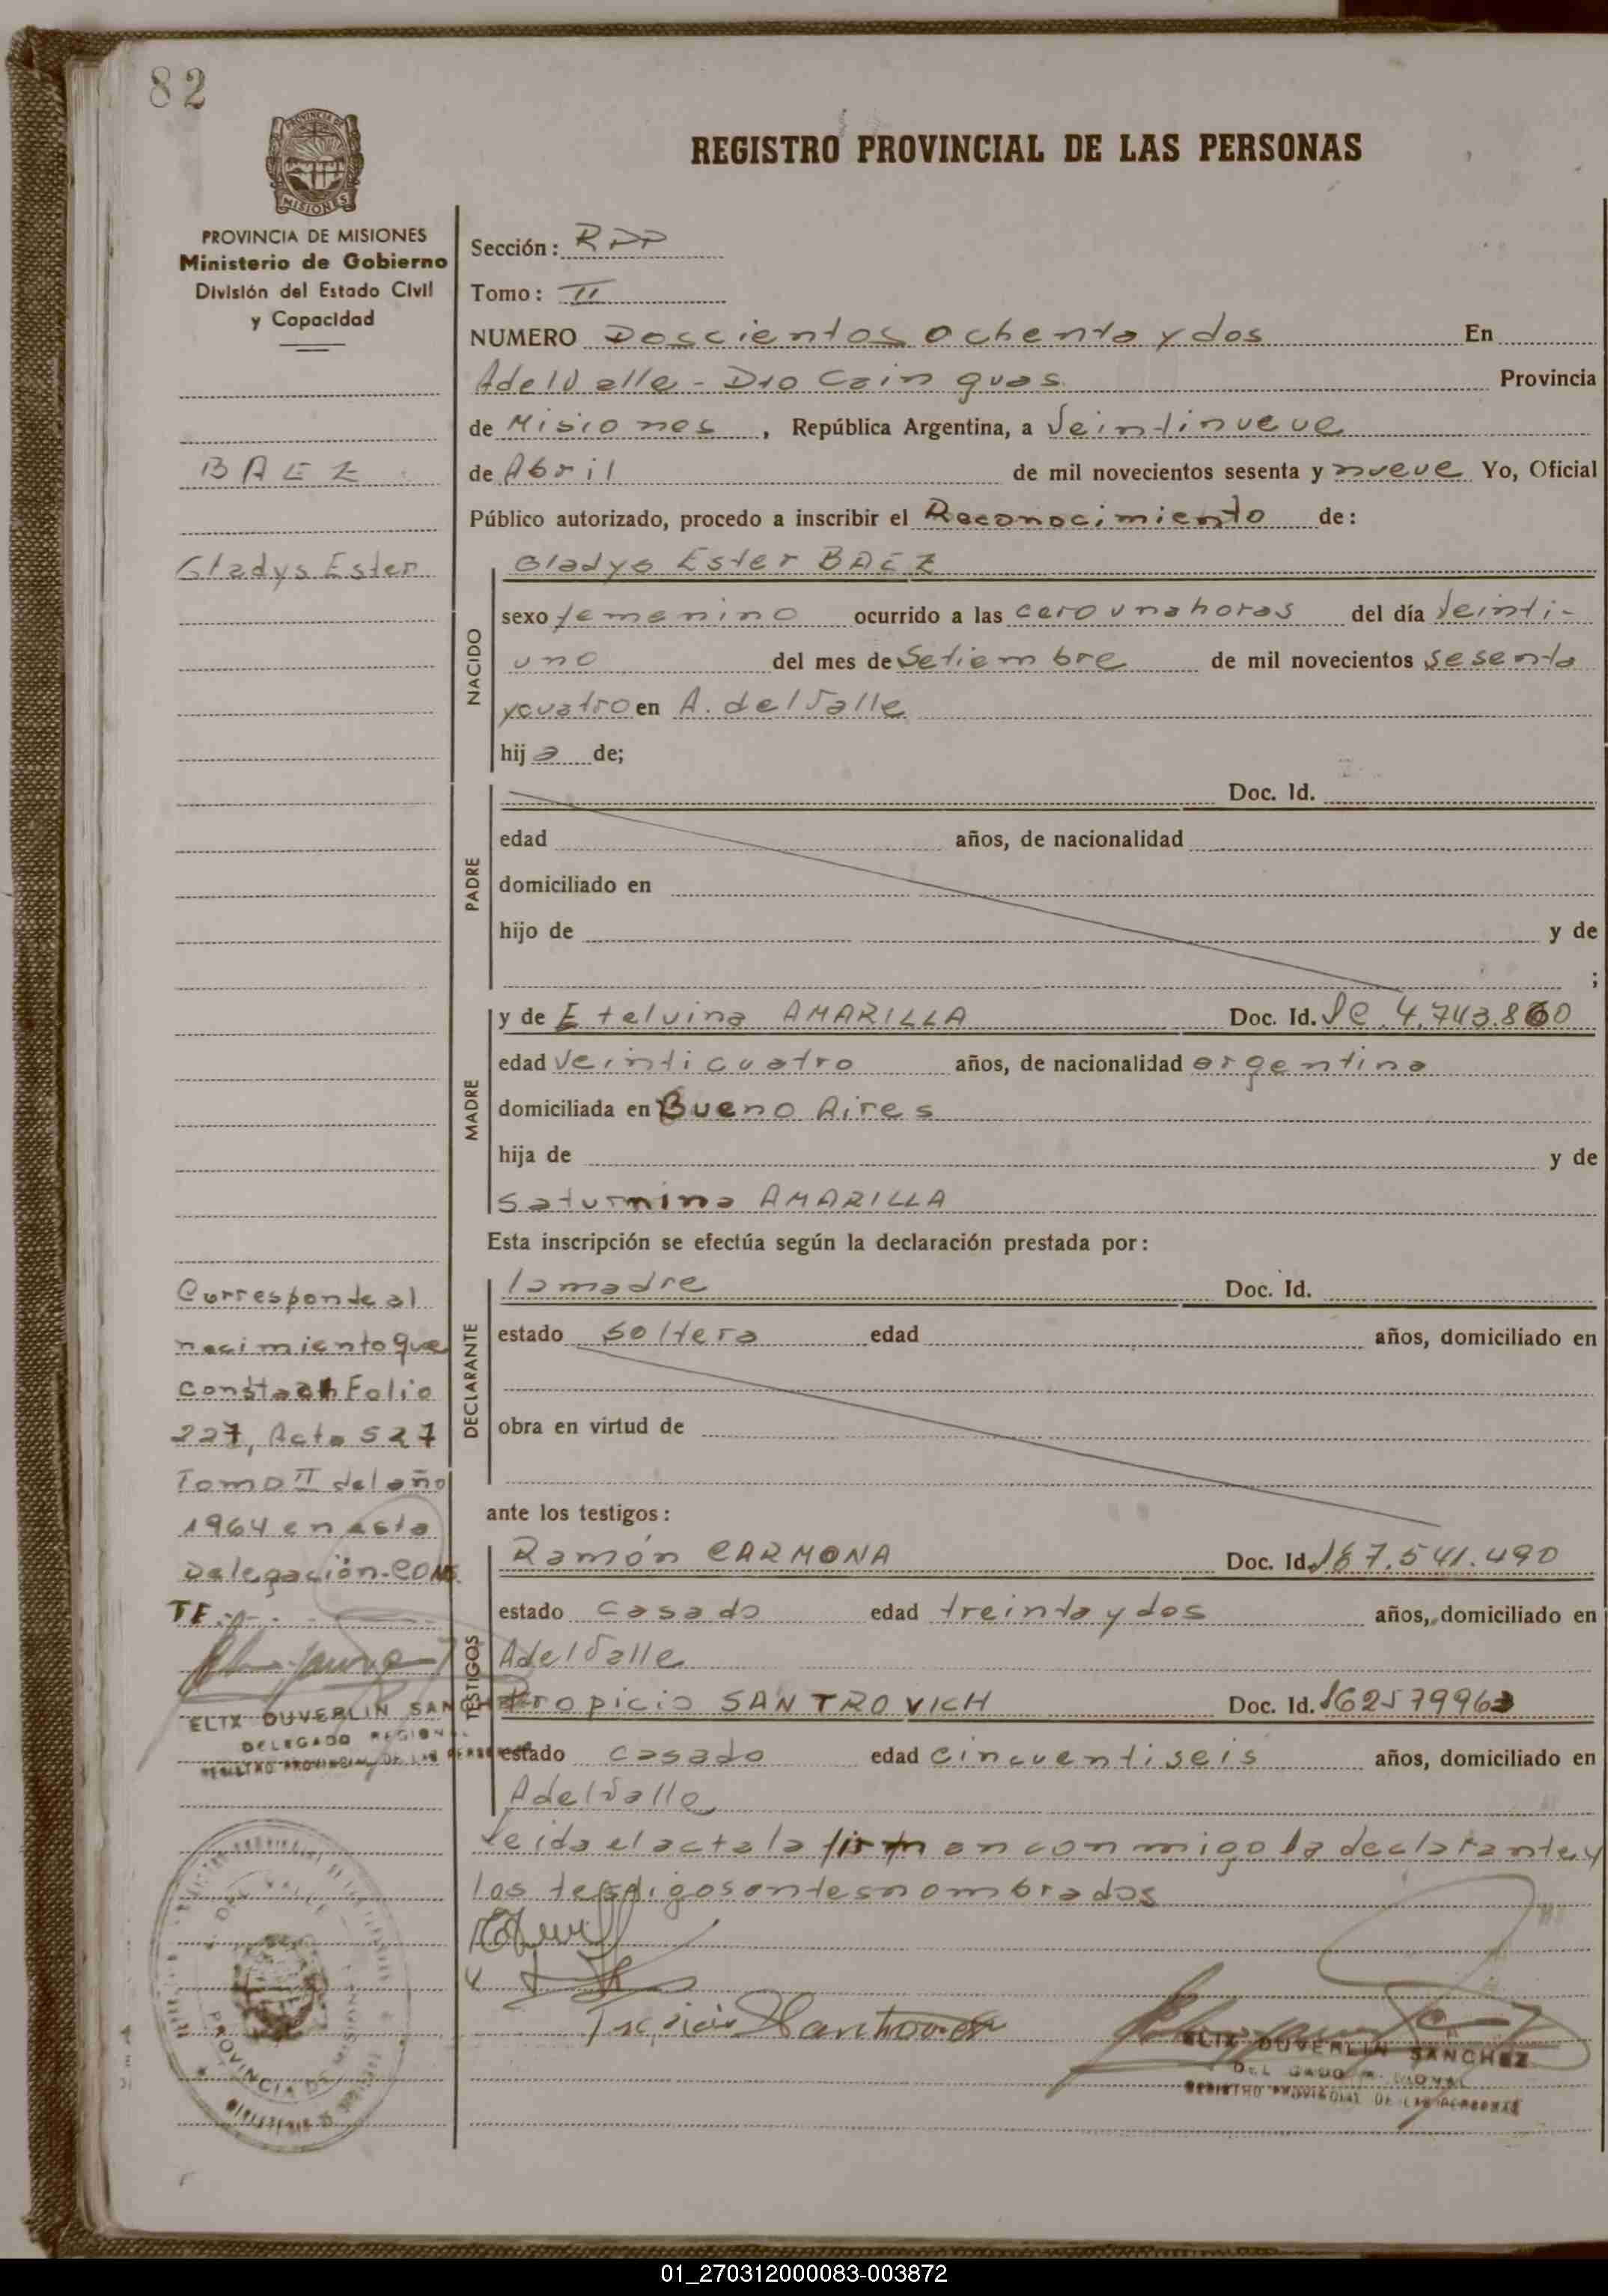 82
PROVINCIA DE MISIONES
REGISTRO PROVINCIAL DE LAS PERSONAS
PROVINCIA DE MISIONES
Ministerio de Gobierno
División del Estado Civil
y Capacidad
BAEZ
Gladys Ester
Corresponde al
nacimiento que
consta an Folio
227, Acta 527
Tomo II del año
1964 en esta
Delegación. CONS
TE.
ELIX DUVERLIN SANCHEZ
DELEGADO REGIONAL
REGISTRO PROVINCIAL DE LAS PERSONAS
PROVINCIA DE MISIONES
Sección: RDP
Tomo: II
NUMERO Doscientos ochenta y dos En
A del Valle - Dto Cainguas Provincia
de Misiones, República Argentina, a Veintinueve
de Abril de mil novecientos sesenta y nueve Yo, Oficial
Público autorizado, procedo a inscribir el Reconocimiento de:
NACIDO
Gladys Ester BAEZ
sexo femenino ocurrido a las cero una horas del día Veinti-
uno del mes de Setiembre de mil novecientos sesenta
y cuatro en A. del Valle
hija de;
PADRE
Doc. Id.
edad años, de nacionalidad
domiciliado en
hijo de y de
;
MADRE
y de Etelvina AMARILLA Doc. Id. LC 4.743.860
edad Veinticuatro años, de nacionalidad argentina
domiciliada en Bueno Aires
hija de y de
Saturnina AMARILLA
Esta inscripción se efectúa según la declaración prestada por:
DECLARANTE
la madre Doc. Id.
estado soltera edad años, domiciliado en
obra en virtud de
ante los testigos:
TESTIGOS
Ramón CARMONA Doc. Id. 7.541.490
estado casado edad treinta y dos años, domiciliado en
A del Valle
Propicio SANTROVICH Doc. Id.
estado casado edad cincuentiseis años, domiciliado en
A del Valle
Leida el acta la firman conmigo la declarante y
los testigos antes nombrados
ELIX DUVERLIN SANCHEZ
DELEGADO REGIONAL
REGISTRO PROVINCIAL DE LAS PERSONAS
01_270312000083-003872